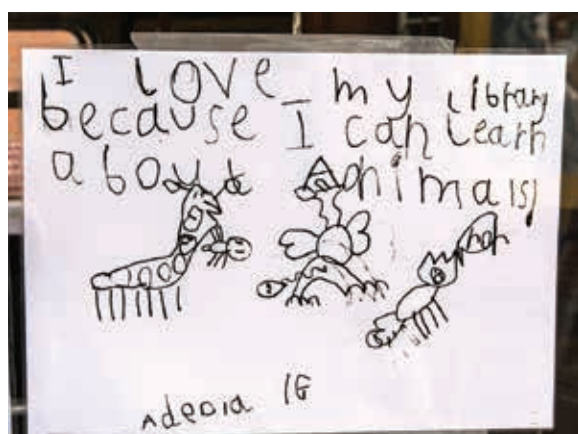 I LOVE my library
because I can learn
about Animals
1G